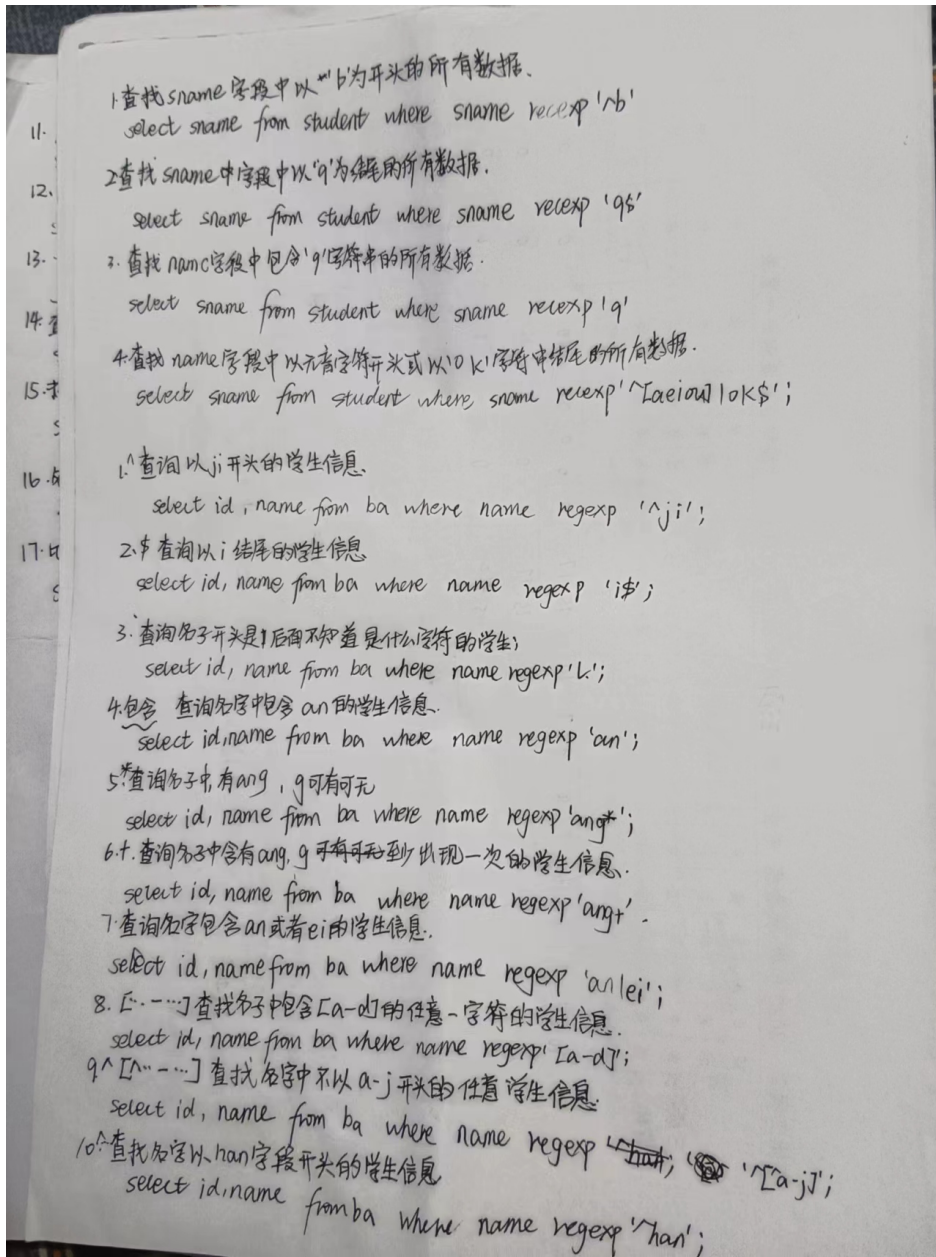 11.
12.
13.
14.
15.
16.
17.
1.查找sname字段中以"b"为开头的所有数据.
select sname from student where sname recexp '^b'
2查找sname中字段中以'g'为结尾的所有数据.
select sname from student where sname recexp 'g$'
3.查找name字段中包含'g'字符串的所有数据.
select sname from student where sname recexp 'g'
4.查找name字段中以元音字符开头或以'ok'字符串结尾的所有数据.
select sname from student where sname recexp '^[aeiou]|ok$';
1.^查询以ji开头的学生信息.
select id, name from ba where name regexp '^ji';
2.$查询以i结尾的学生信息
select id, name from ba where name regexp 'i$';
3.查询名子开头是l后面不知道是什么字符的学生;
select id, name from ba where name regexp 'l.';
4.包含 查询名字中包含an的学生信息.
select id,name from ba where name regexp 'an';
5.*查询名子中,有ang,g可有可无
select id, name from ba where name regexp 'ang*';
6.+.查询名子中含有ang,g可有可无至少出现一次的学生信息.
select id, name from ba where name regexp 'ang+'.
7.查询名字包含an或者ei的学生信息.
select id, name from ba where name regexp 'an|ei';
8.[…-…]查找名子中包含[a-d]的任意一字符的学生信息.
select id, name from ba where name regexp '[a-d]';
9^[^…-…]查找名字中不以a-j开头的任意学生信息.
select id, name from ba where name regexp '^han', '^[^a-j]';
10^查找名字以han字段开头的学生信息
select id,name from ba where name regexp '^han';